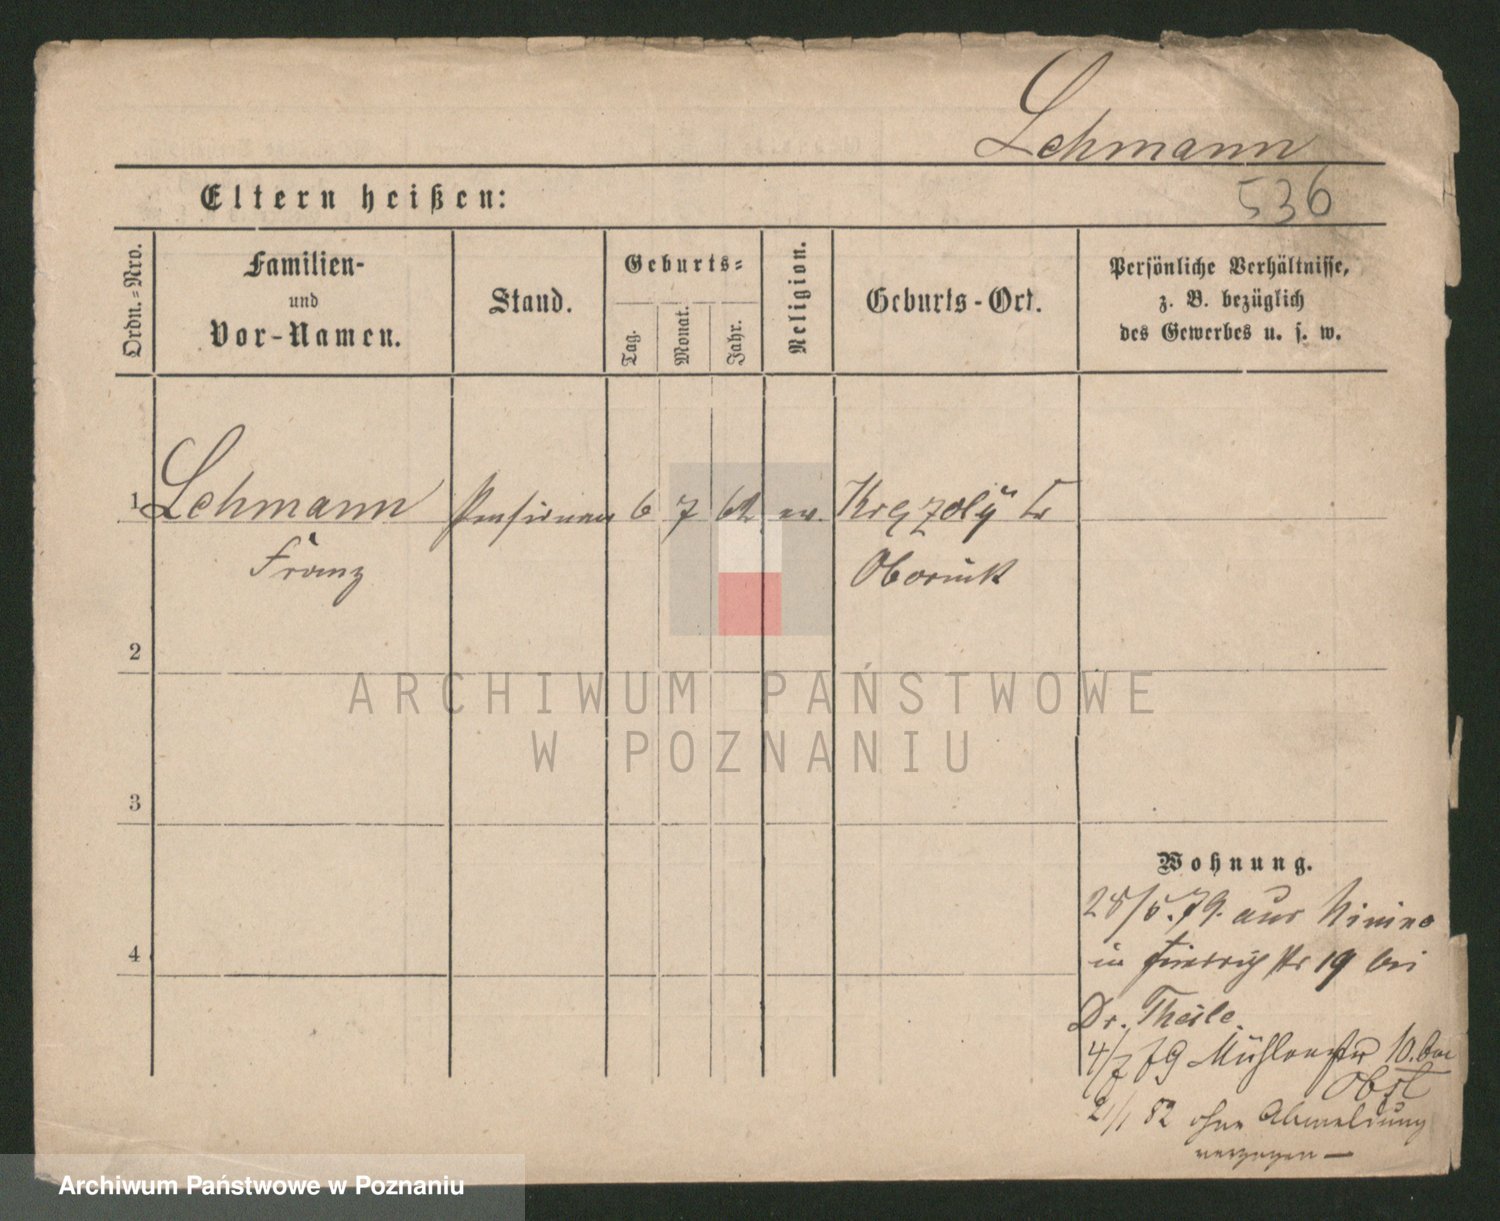 Lehmann
Eltern heißen:
536
Ordn.-Nro.
Familien-
und
Vor-Namen.
Stand.
Geburts-
Tag.
Monat.
Jahr.
Religion.
Geburts-Ort.
Persönliche Verhältnisse,
z. B. bezüglich
des Gewerbes u. s. w.
1 Lehmann 6 7 62 ev.
Franz Obornik
2
ARCHIWUM PAŃSTWOWE
W POZNANIU
3
Wohnung.
28/5.79. aus
4
in str 19 bei
Dr. Theile.
4/7 79 Mühlenstr 10. bei
Obst
21/1 82 ohne Abmeldung
verzogen —
Archiwum Państwowe w Poznaniu